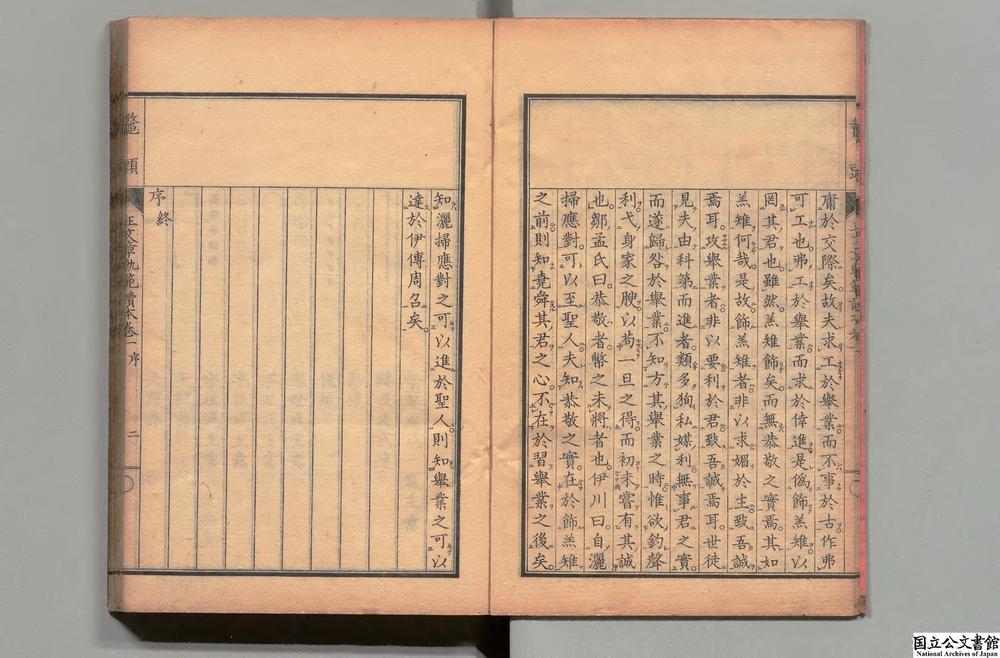 庸於交際矣故夫求工於舉業而不事於古作弗
可工也弗工於舉業而求於倖進是僞飾羔雉以
罔其君也雖然羔雉飾矣而無恭敬之實焉其如
羔雉何哉是故飾羔雉者非以求媚於主致吾誠
焉耳攻舉業者非以要利於君致吾誠焉耳世徒
見夫由科第而進者類多狥私媒利無事君之實
而遂歸咎於舉業不知方其舉業之時惟欲釣聲
利弋身家之腴以苟一旦之得而初未嘗有其誠
也鄒孟氏曰恭敬者幣之未將者也伊川曰自灑
掃應對可以至聖人夫知恭敬之實在於飾羔雉
之前則知堯舜其君之心不在於習舉業之後矣
知灑掃應對之可以進於聖人則知舉業之可以
達於伊傅周召矣
序終
鼇頭
正文章軌範讀本卷一序
二
国立公文書館
National Archives of Japan